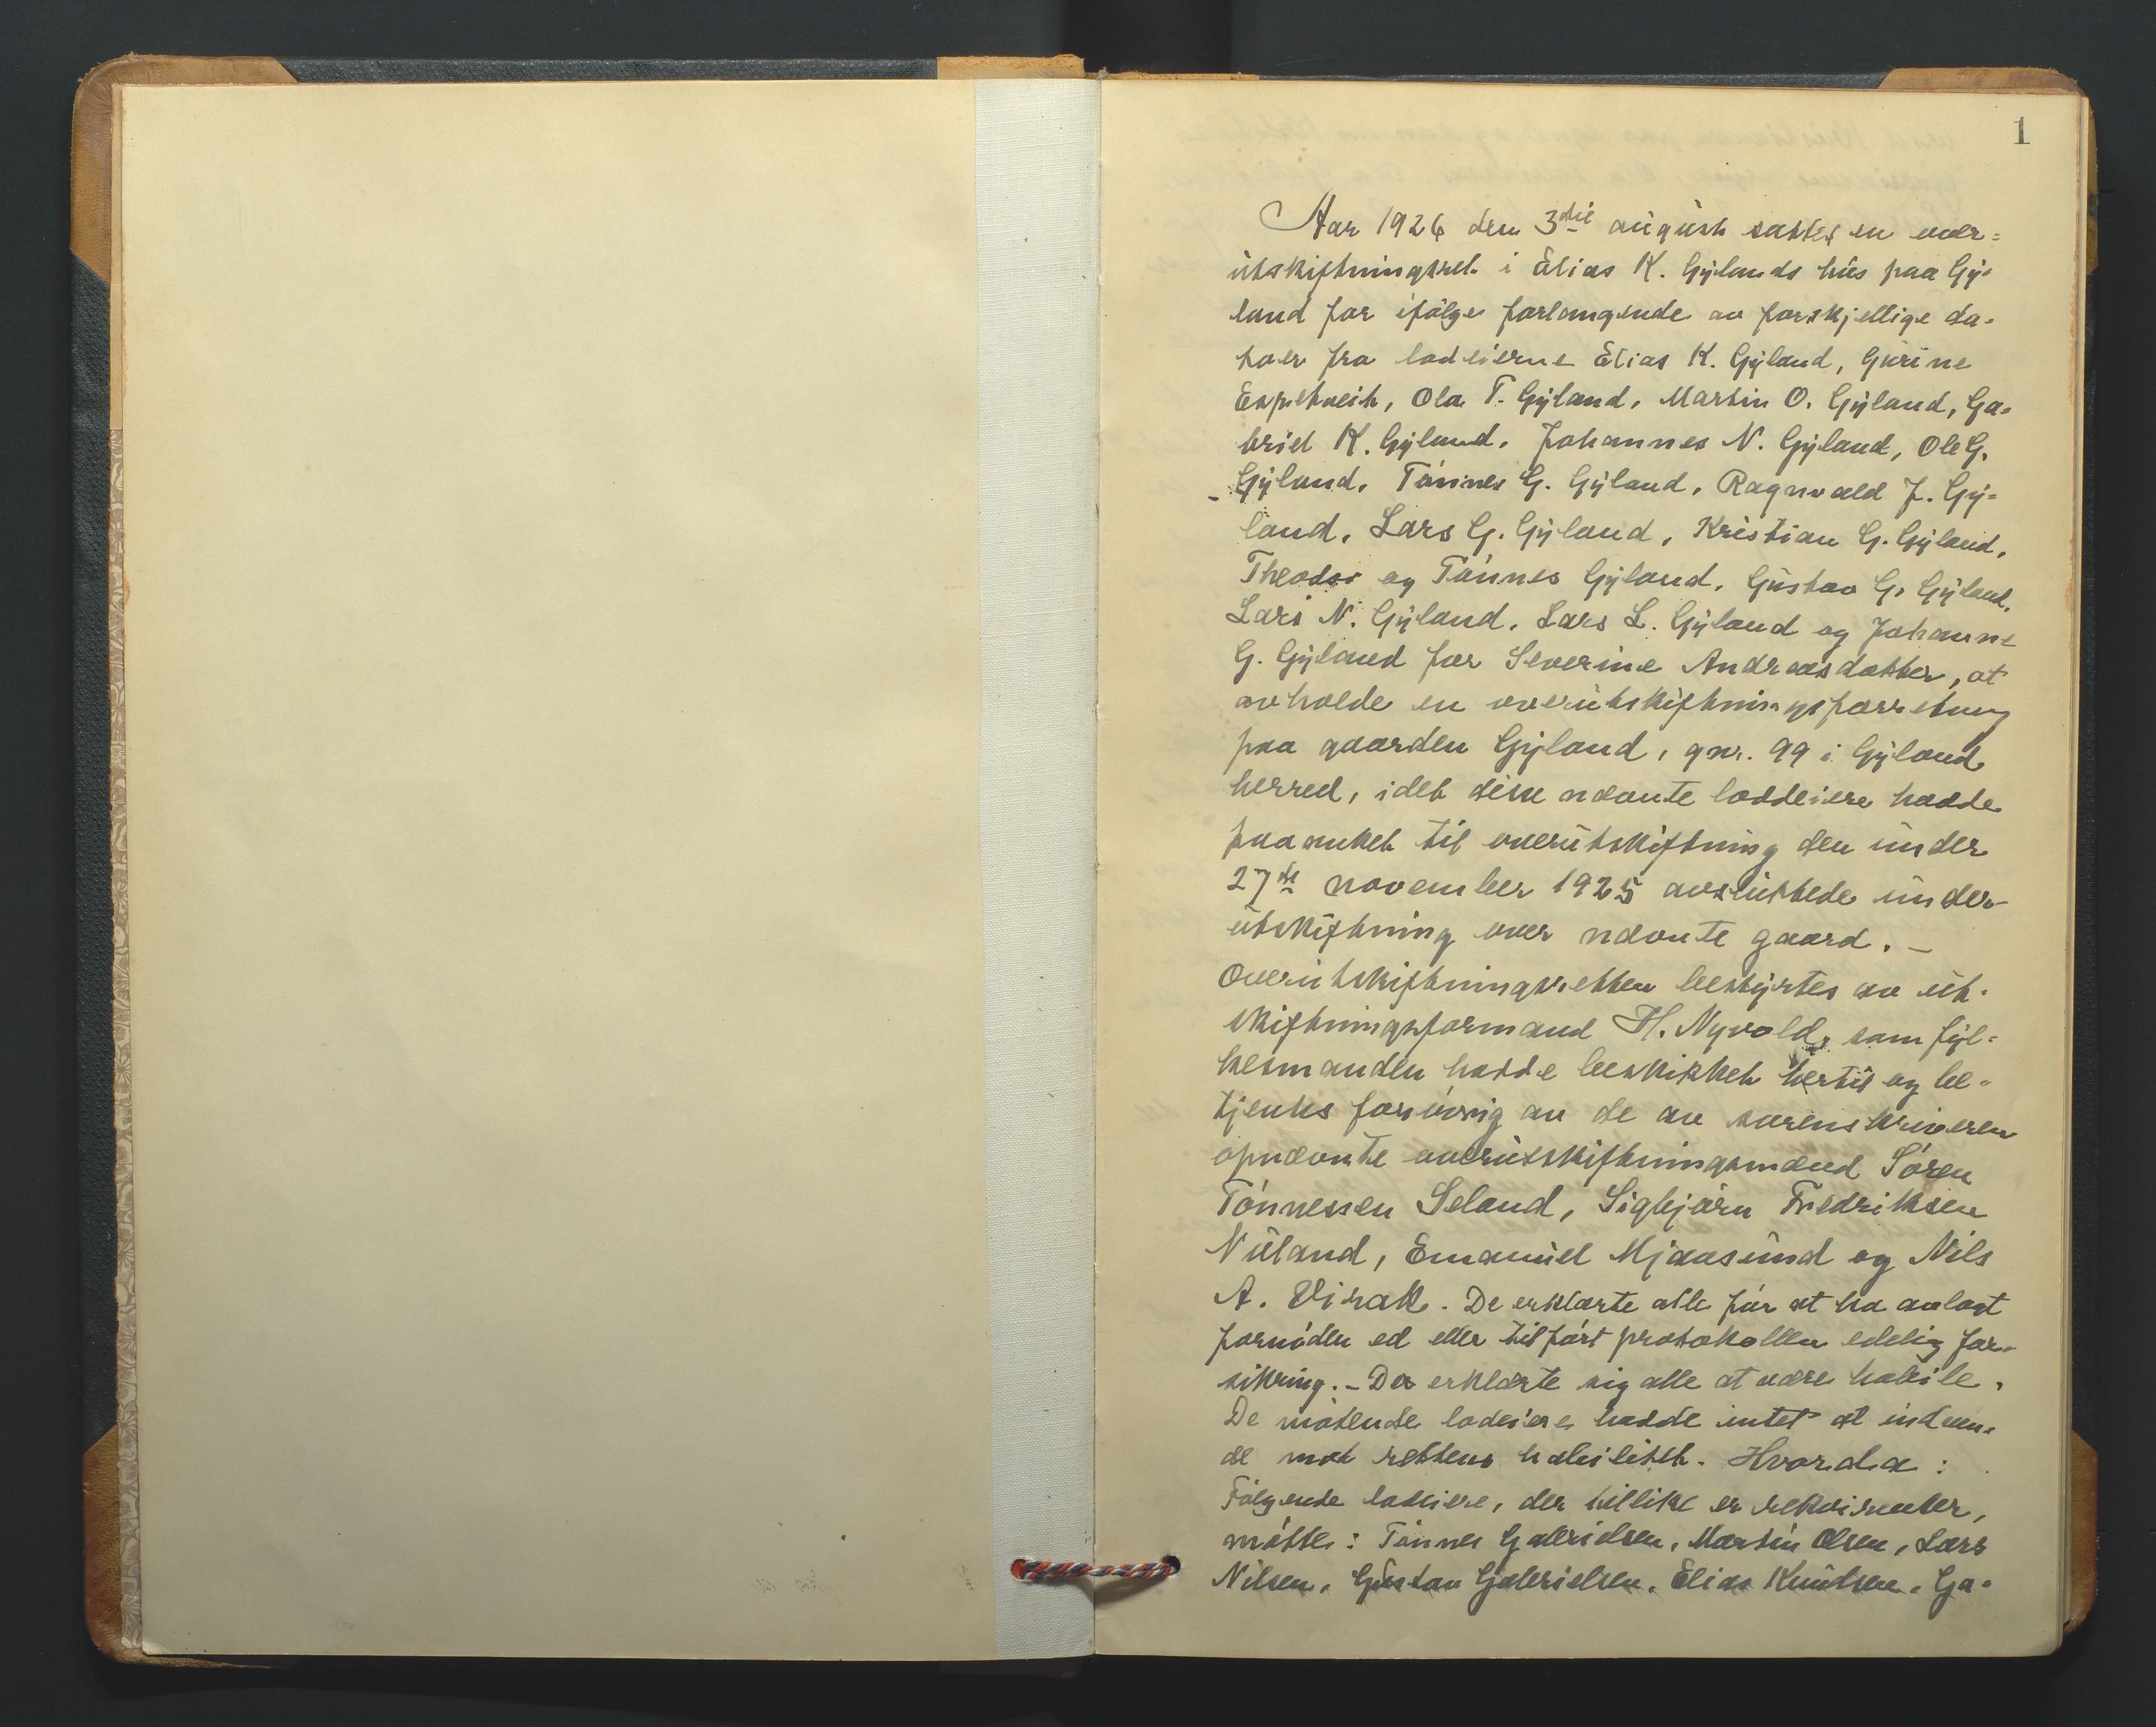 1
Aar 1926 den 3die august sattes en over=
utskiftningsret i Elias K. Gylands hus paa Gy=
land for ifølge forlangende av forskjellige da=
toer fra lodeierne Elias K. Gyland, Gurine
Espetveit, Ola T. Gyland, Martin O. Gyland, Ga=
briel K. Gyland, Johannes N. Gyland, Ole G.
Gyland, Tønnes G. Gyland, Ragnvald J. Gy=
land, Lars G. Gyland, Kristian G. Gyland,
Theodor og Tønnes Gyland, Gustav G. Gyland,
Lars N. Gyland, Lars L. Gyland og Johanne
G. Gyland for Severine Andreasdatter, at
avholde en overutskiftningsforretning
paa gaarden Gyland, gnr. 99 i Gyland
herred, idet disse nævnte loddeiere hadde
paaanket til overutskiftning den under
27de november 1925 avsluttede under-
utskiftning over nævnte gaard. -
Overutskiftningsretten bestyrtes av ut=
skiftningsformand H. Nyvold, som fyl=
kesmanden hadde beskikket hertil og be=
tjentes forøvrig av de av sorenskriveren
opnævnte overutskiftningsmænd Søren
Tønnessen Seland, Sigbjørn Fredriksen
Nuland, Emanuel Mjaasund og Nils
A. Virak. De erklærte alle før at ha avlagt
fornøden ed eller tilført protokollen edelig for=
sikring. - De erklærte sig alle at være habile.
De møtende lodeiere hadde intet at indven=
de mot rettens habilitet. Hvorda:
Følgende lodeiere, der tillike er rekvirenter,
møtte: Tønnes Gabrielsen, Martin Olsen, Lars
Nilsen, Gustav Gabrielsen, Elias Knutsen, Ga=